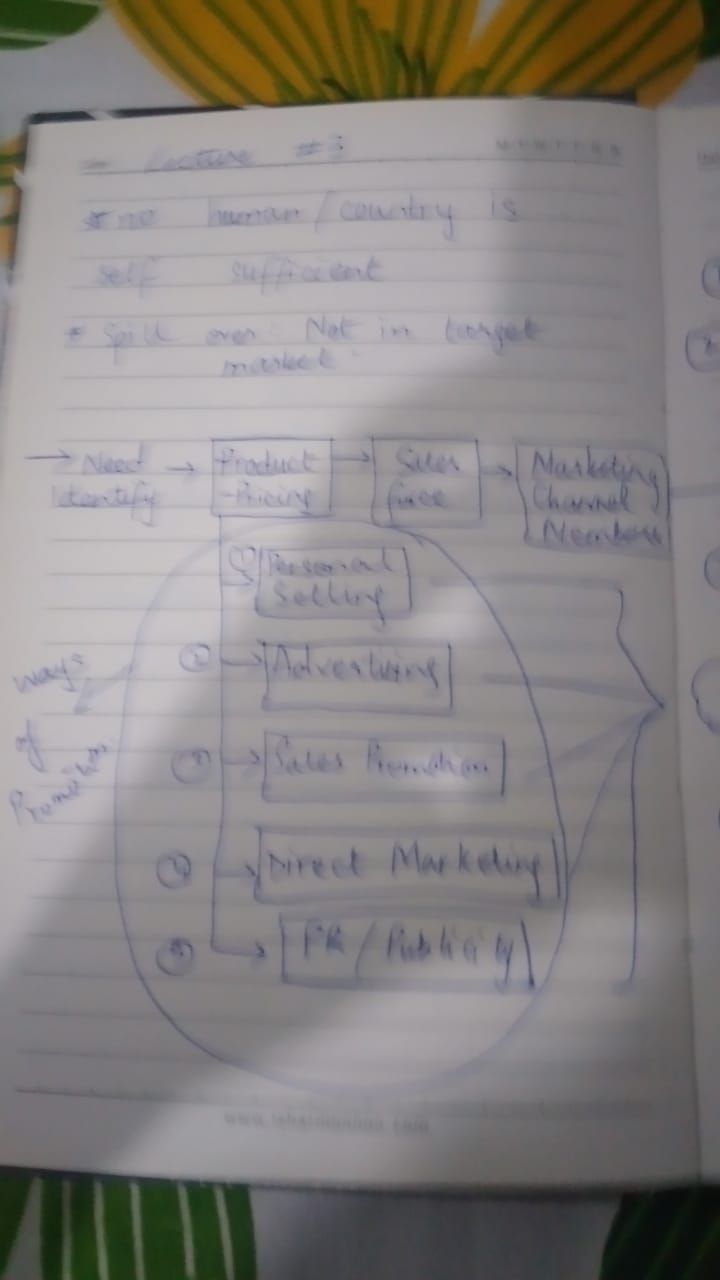 Lecture #3
* no human/country is
self sufficient
* Spill over: Not in target
market.
→ Need → Product → Sales → Marketing
identify -Pricing force Channel
Members
① Personal
Selling
② → Advertising
③ → Sales Promotion
④ → Direct Marketing
⑤ → PR/Publicity
ways
of
Promotion